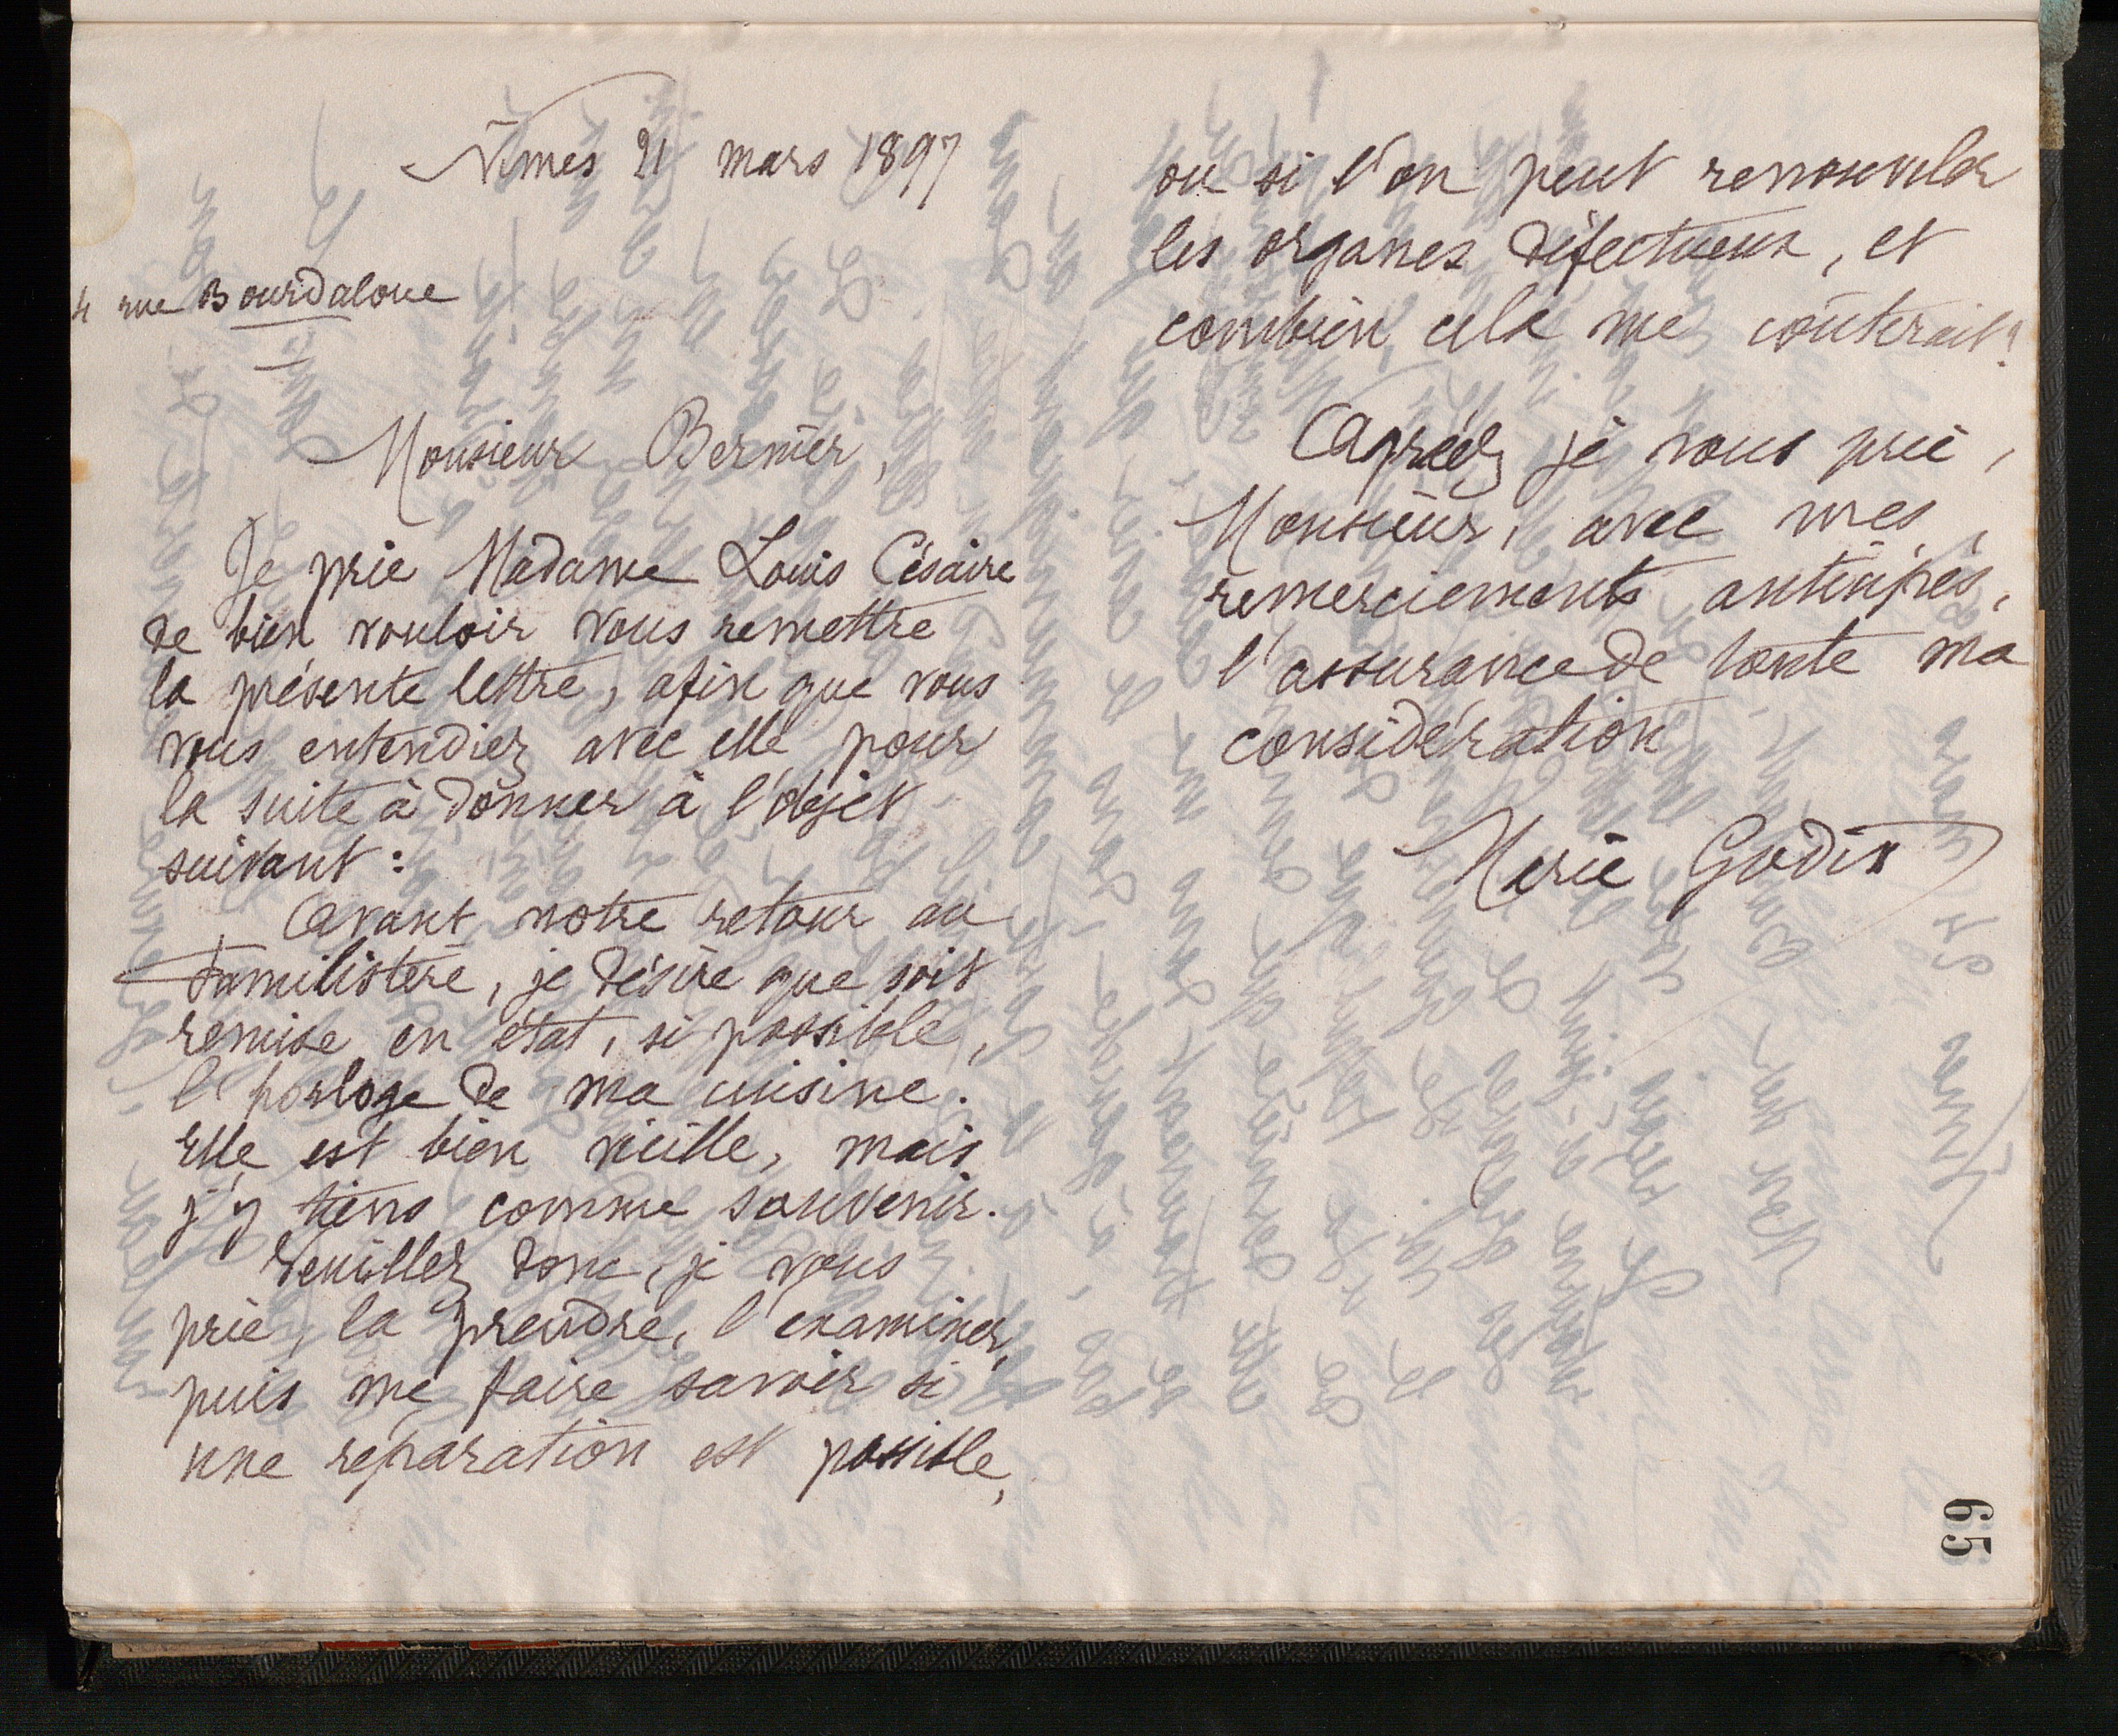 Nîmes 21 mars 1897
4 rue Bourdaloue
Monsieur Bernier,
Je prie Madame Louis Césaire
de bien vouloir vous remettre
la présente lettre, afin que vous
vous entendiez avec elle pour
la suite à donner à l'objet
suivant :
Avant notre retour au
Familistère, je désire que soit
remise en état, si possible,
l'horloge de ma cuisine.
Elle est bien vieille, mais
j'y tiens comme souvenir.
Veuillez donc, je vous
prie, la prendre, l'examiner,
puis me faire savoir si
une réparation est possible,
ou si l'on peut renouveler
les organes défectueux, et
combien cela me coûterait?
Agréez je vous prie,
Monsieur, avec mes
remerciements anticipés,
l'assurance de toute ma
considération
Marie Godin
65